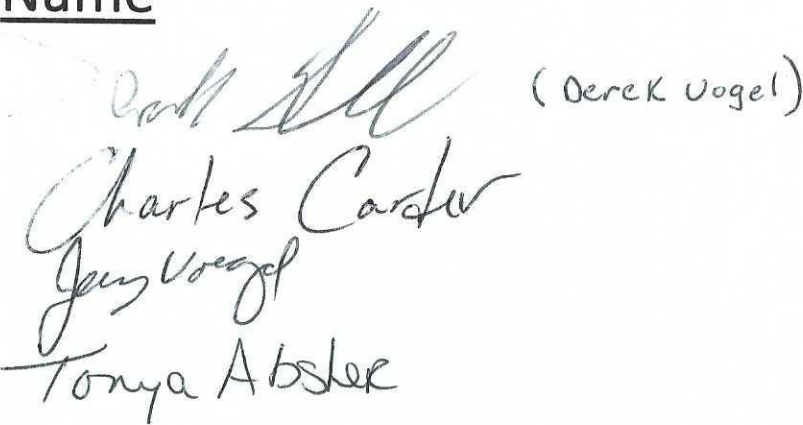 Name
(Derek Vogel)
Charles Carder
Jerry Voegel
Tonya Absher